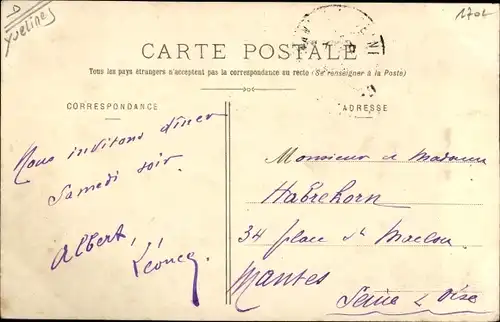 D
Yvelines
1702
CARTE POSTALE
Tous les pays étrangers n'acceptent pas la correspondance au recto (Se renseigner à la Poste)
CORRESPONDANCE
ADRESSE
Nous invitons dîner
Samedi soir
Albert, Léonce
Monsieur et Madame
Habrekorn
34 place St Maclou
Mantes
Seine & Oise